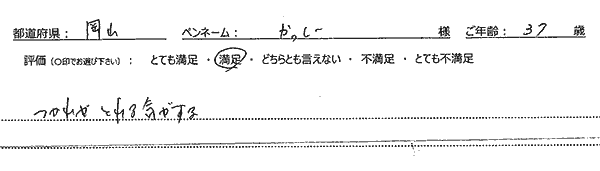 都道府県： 岡山 ペンネーム： かっしー 様 ご年齢： 37 歳
評価（○印でお選び下さい）： とても満足 ・ 満足 ・ どちらとも言えない ・ 不満足 ・ とても不満足
つかれがとれる気がする